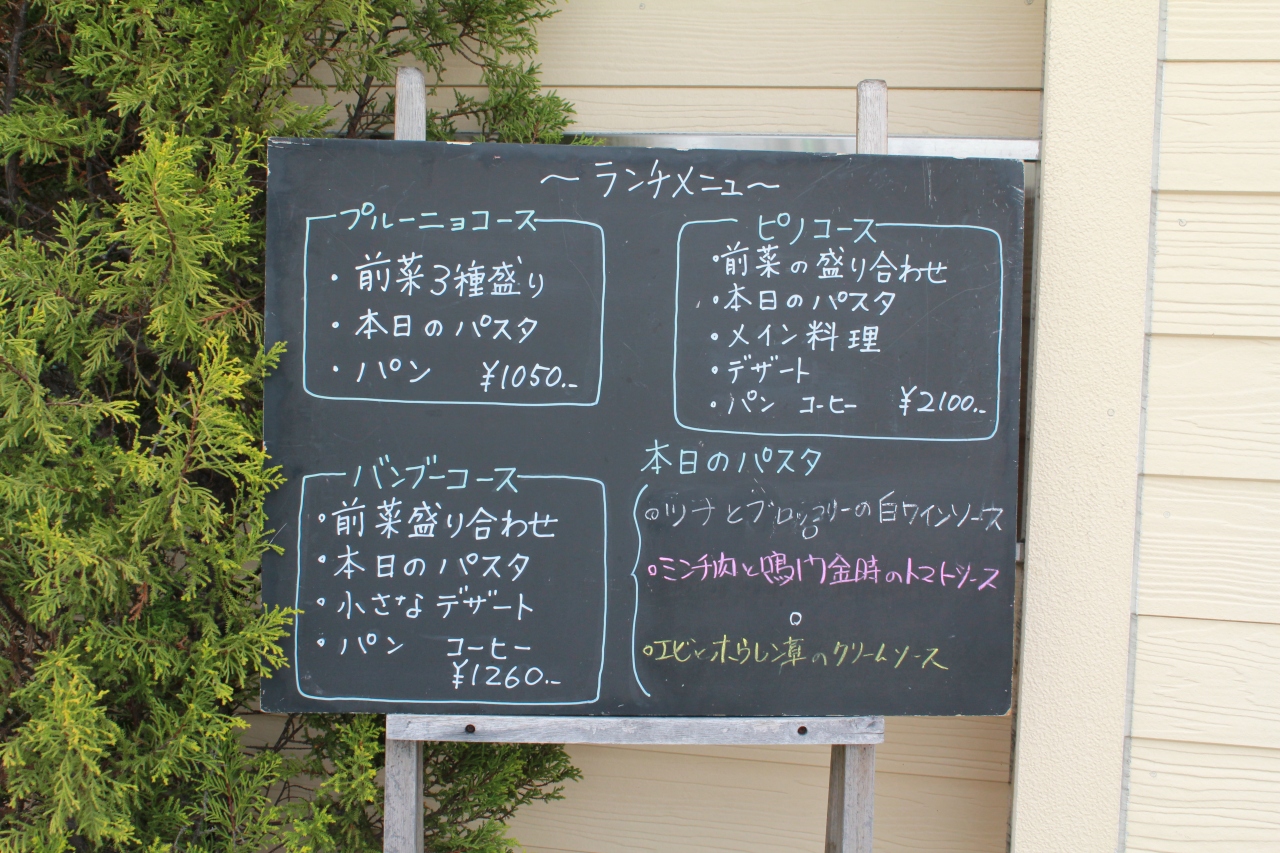 ～ランチメニュー～
プルーニョコース
・前菜3種盛り
・本日のパスタ
・パン ¥1050.-
ピノコース
・前菜の盛り合わせ
・本日のパスタ
・メイン料理
・デザート
・パン コーヒー ¥2100.-
バンブーコース
・前菜盛り合わせ
・本日のパスタ
・小さなデザート
・パン コーヒー
¥1260.-
本日のパスタ
・ツナとブロッコリーの白ワインソース
・ミンチ肉と鳴門金時のトマトソース
・エビとホウレン草のクリームソース